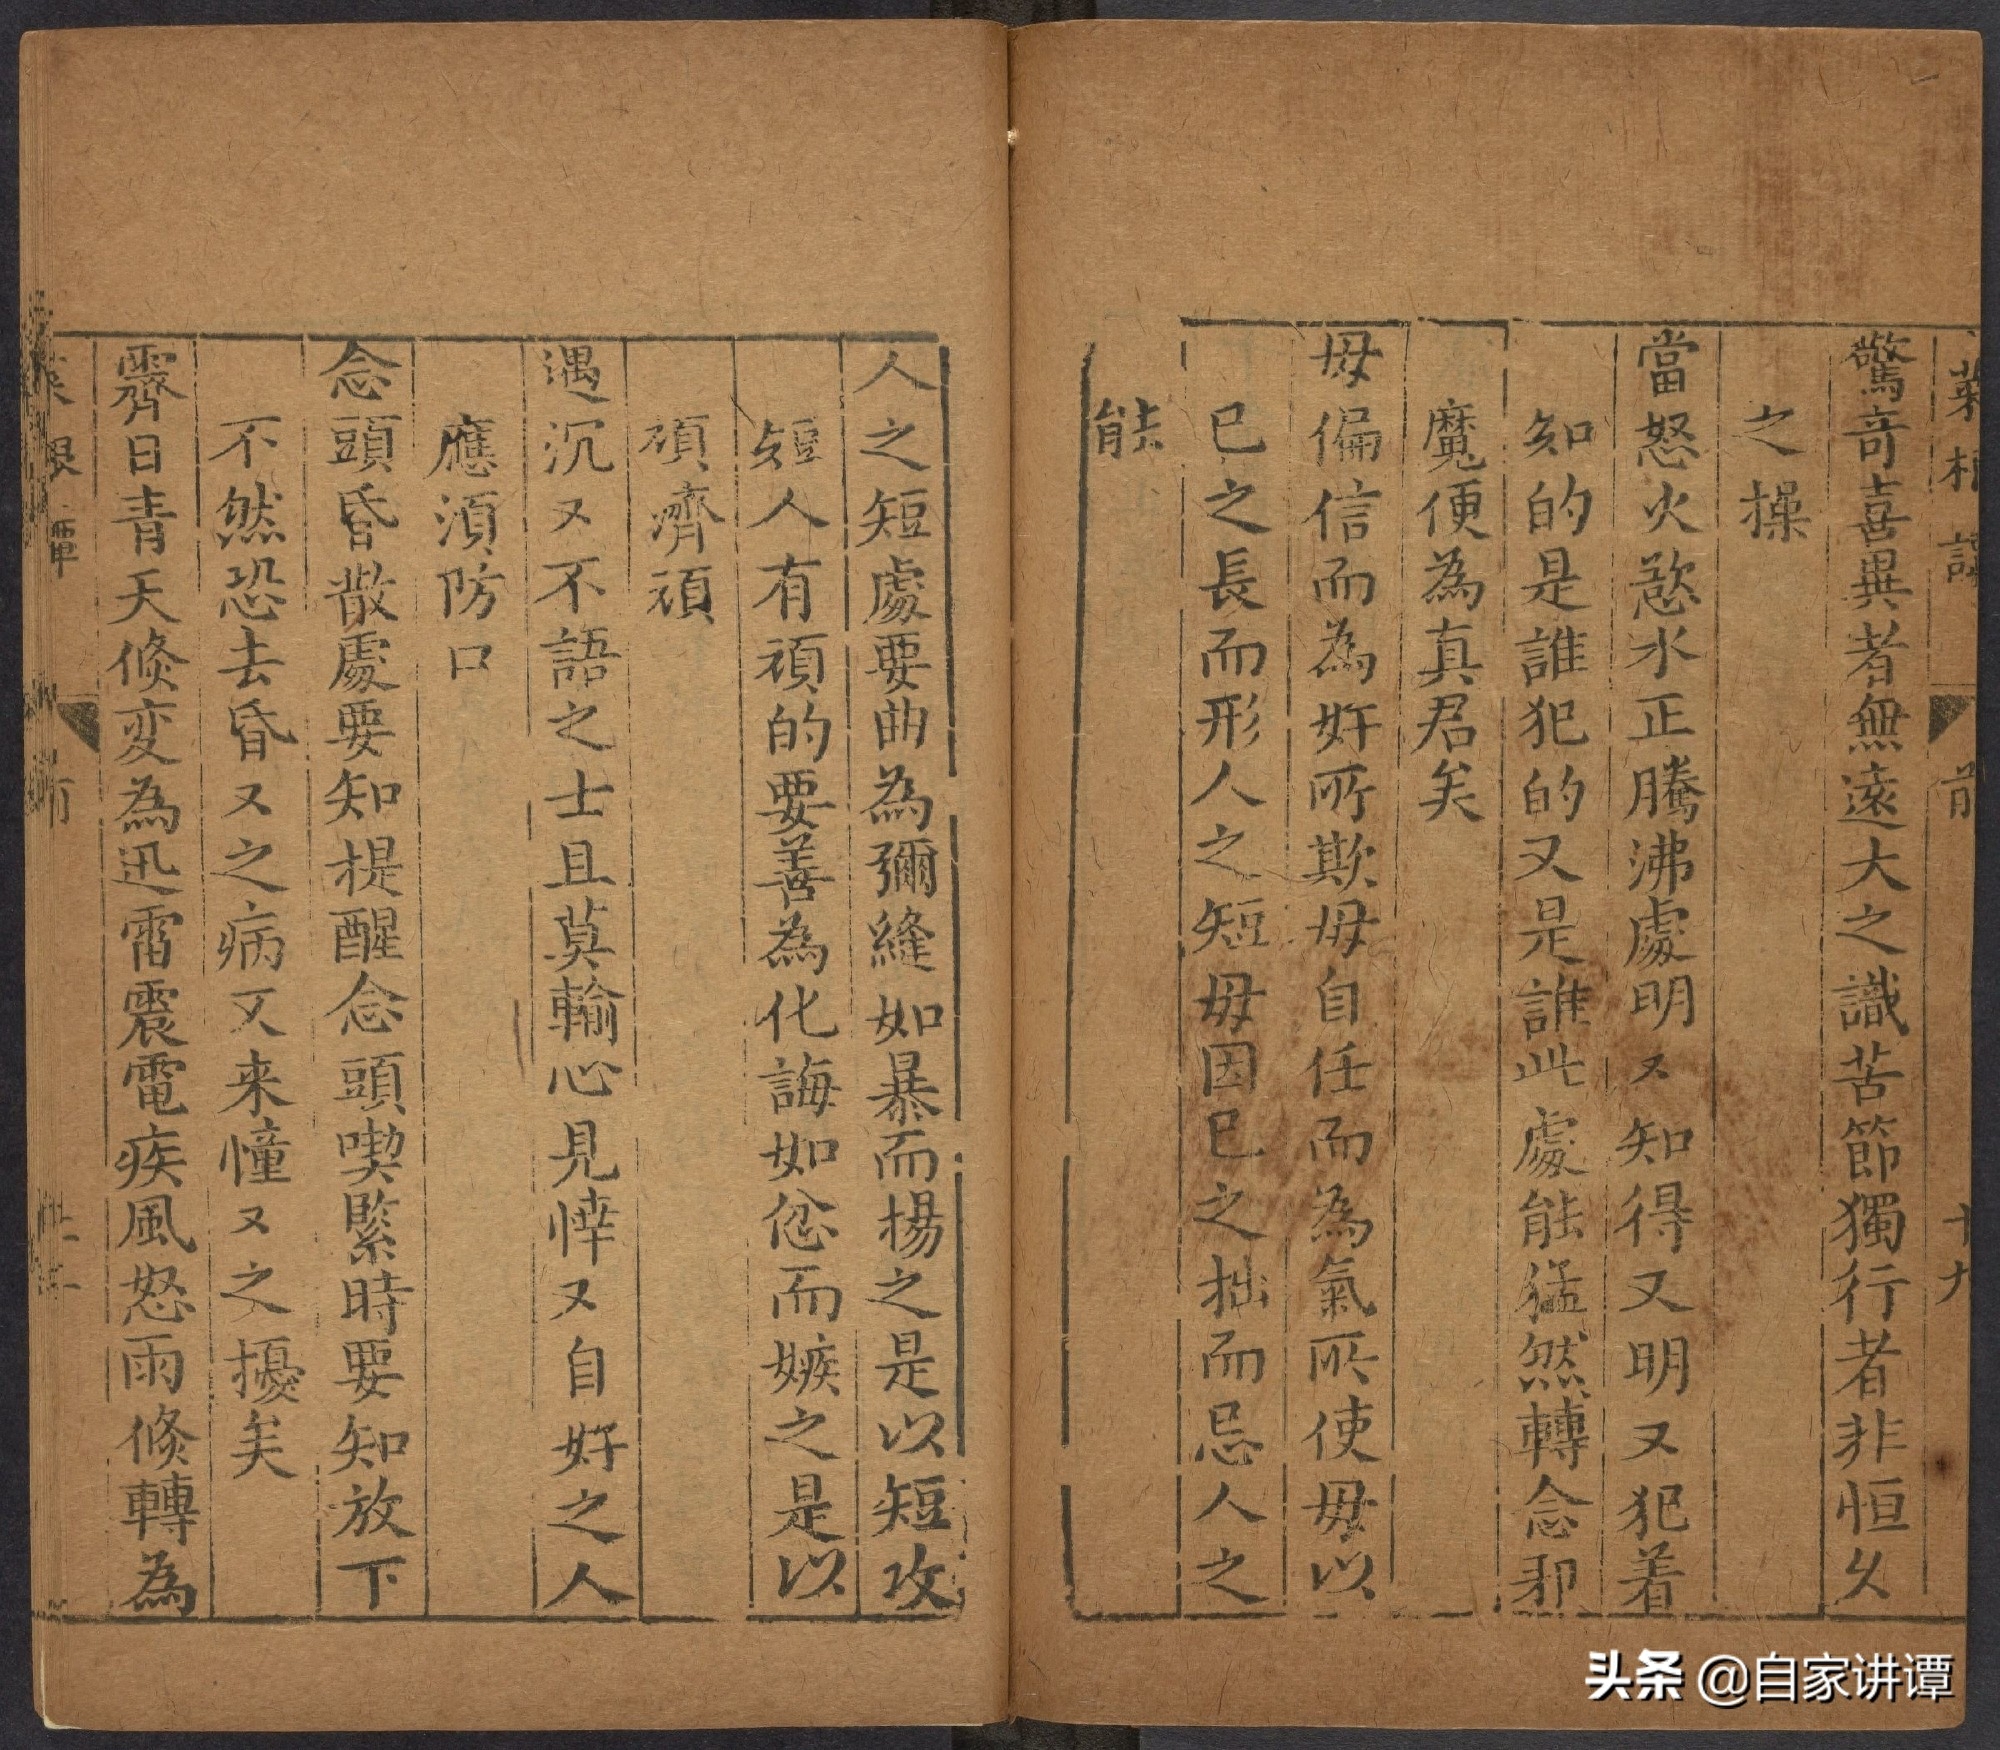 菜根譚 前 十九
驚奇喜異者無遠大之識苦節獨行者非恒久
之操
當怒火慾水正騰沸處明又知得又明又犯着
知的是誰犯的又是誰此處能猛然轉念邪
魔便為真君矣
毋偏信而為奸所欺毋自任而為氣所使毋以
已之長而形人之短毋因已之拙而忌人之
能
人之短處要曲為彌縫如暴而揚之是以短攻
短人有頑的要善為化誨如忿而嫉之是以
頑濟頑
遇沉又不語之士且莫輸心見悻又自好之人
應湏防口
念頭昏散處要知提醒念頭喫緊時要知放下
不然恐去昏又之病又来憧又之擾矣
霽日青天倐変為迅雷震電疾風怒雨倐轉為
頭条 @自家讲谭